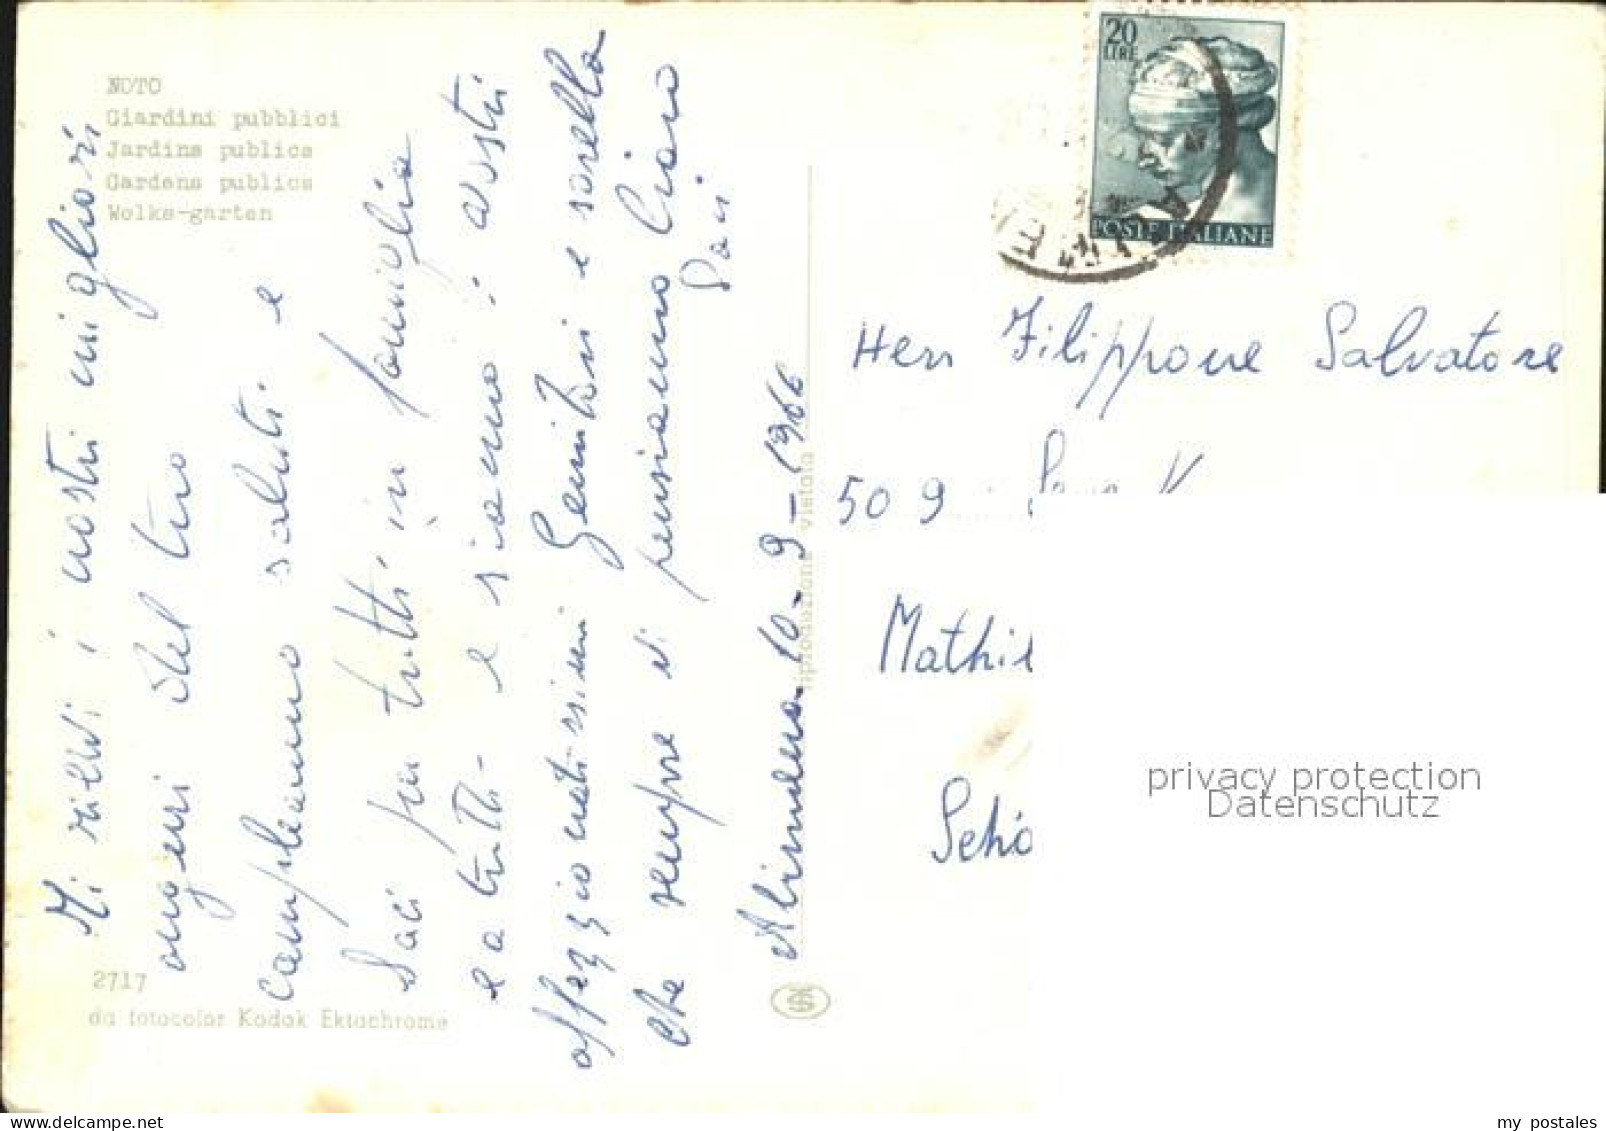 NOTO
Giardini pubblici
Jardins publics
Gardens publics
Wolks-garten
Mi i nostri migliori
auguri del tuo
compleanno saluti e
baci per tutti in famiglia
e a tutti - e siamo i vostri
affezzionatissimi Genitori e sorella
che sempre vi pensiamo Ciao
Baci
Alimena 10-9-1966
riproduzione vietata
2717
da fotocolor Kodak Ektachrome
20
LIRE
POSTE ITALIANE
Herr Filippone Salvatore
509
Mathil
Schö
privacy protection
Datenschutz
my postales